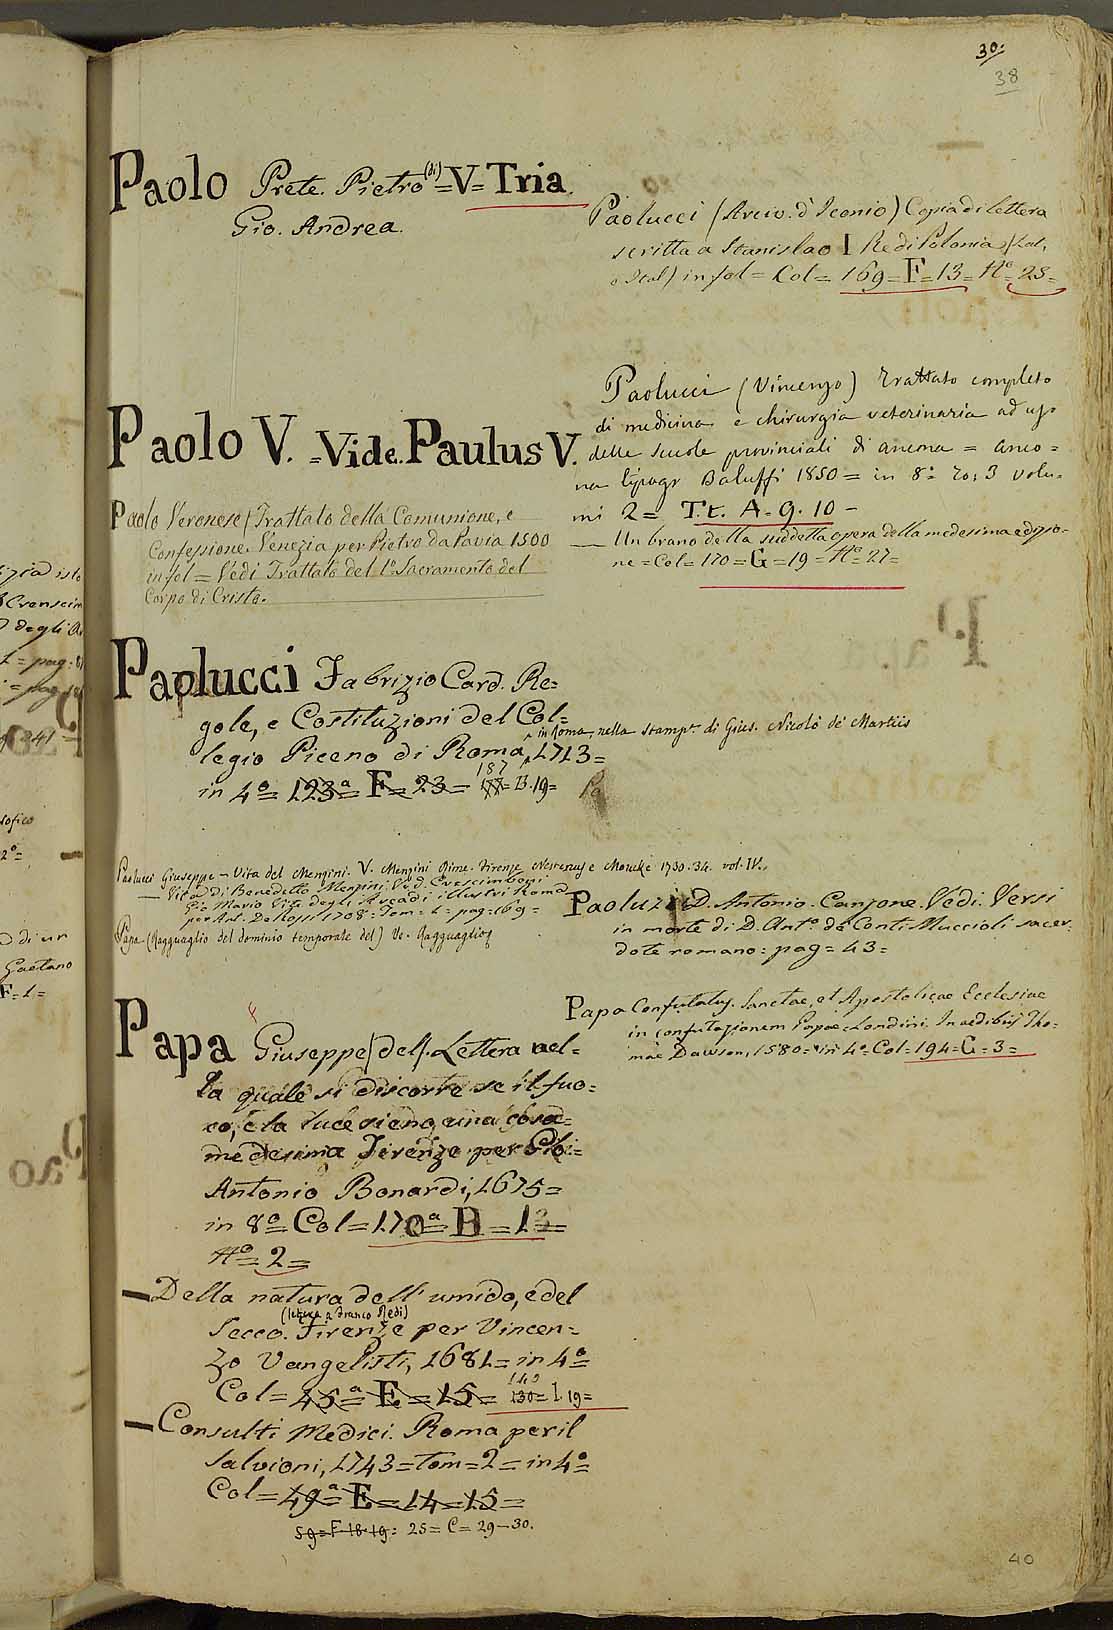 30.
38
Paolo Prete. Pietro (di) = V = Tria.
Gio. Andrea.
Paolo V. = Vide. Paulus V.
Paolo Veronese / Trattato della Comunione, e
Confessione. Venezia per Pietro da Pavia 1500
in fol = Vedi Trattato del 1º Sacramento del
Corpo di Cristo.
Paolucci Fabrizio Card. Re=
gole, e Costituzioni del Col=
legio Piceno di Roma, 1713=
in Roma, nella stampa di Gius. Nicolò de' Martiis
in 4º = 123ª = F = 23 = 187 = B. 19=
Paolucci Giuseppe — Vita del Menzini. V. Menzini Rime. Firenze Nestenus e Moucke 1730.34. vol. IV.
— Vita di Benedetto Menzini. Ved. Crescimbeni
Gio Mario Vite degli Arcadi illustri Roma
per Ant. De Rossi 1708 = Tom = 1 = pag = 169 =
Papa (Ragguaglio del dominio temporale del) Ve. Ragguaglio
Papa Giuseppe / del /. Lettera nel=
la quale si discorre se il fuo=
co, e la luce sieno una cosa=
medesima Firenze per Gio:
Antonio Bonardi, 1675=
in 8º = Col = 170ª = B = 13=
Nº = 2 =
— Della natura dell' umido, e del
Secco. (lettera a Franco Redi) Firenze per Vincen=
zo Vangelisti, 1681 = in 4º=
Col = 45ª = E = 15 = 130 = 149 = l. 19=
— Consulti Medici. Roma per il
Salvioni, 1743 = Tom = 2 = in 4º=
Col = 49ª = E = 14 = 15 =
59 = F 18 19 = 25 = C = 29 - 30.
Paolucci (Arciv. d'Iconio) Copia di lettera
scritta a Stanislao I Re di Polonia / Lat,
e Ital / in fol = Col = 169 = F = 13 = Nº = 28 =
Paolucci (Vincenzo) Trattato completo
di medicina e chirurgia veterinaria ad uso
delle scuole provinciali di ancona = anco=
na tipogr Baluffi 1850 = in 8º To: 3 volu=
mi 2 = T.t. A. 9. 10 -
— Un brano della suddetta opera della medesima edizio=
ne = Col = 170 = G = 19 = Nº = 27 =
Pa
Paoluzi D. Antonio. Canzone. Vedi. Versi
in morte di D. Antº de' Conti Muccioli sacer=
dote romano: pag = 43 =
Papa Confutatus. Sanctae, et Apostolicae Ecclesiae
in confutazionem Papae. Londini. In aedibus Tho=
mae Dawson, 1580 = in 4º = Col = 194 = G = 3 =
40